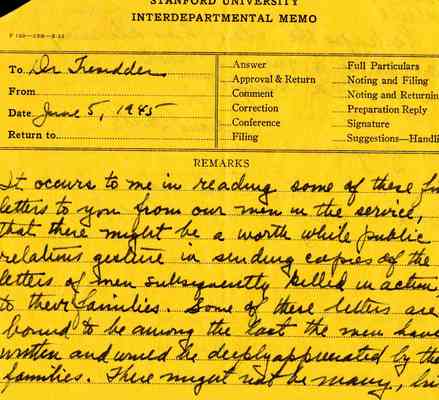 STANFORD UNIVERSITY
INTERDEPARTMENTAL MEMO
To Dr Tresidder
From
Date June 5, 1945
Return to
Answer
Approval & Return
Comment
Correction
Conference
Filing
Full Particulars
Noting and Filing
Noting and Returnin
Preparation Reply
Signature
Suggestions—Handli
REMARKS
It occurs to me in reading some of these
letters to you from our men in the service,
that there might be a worth while public
relations gesture in sending copies of the
letters of men subsequently killed in action
to their families. Some of these letters are
bound to be among the last the men have
written and would be deeply appreciated by the
families. There might not be many,